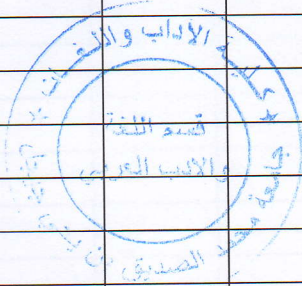 كلية الآداب واللغات
قسم اللغة
والأدب العربي
جامعة محمد الصديق بن يحيى